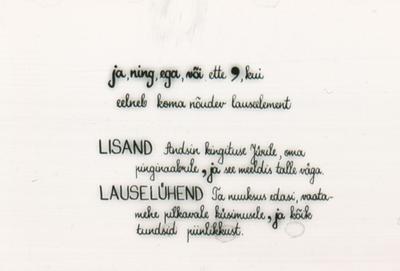 ja, ning, ega, või ette , kui
eelneb koma nõudev lauseelement
LISAND Andsin kingituse Jürile, oma
pinginaabrile, ja see meeldis talle väga.
LAUSELÜHEND Ta nuuksus edasi, vaata-
mehe pilkavale küsimusele, ja kõik
tundsid piinlikkust.